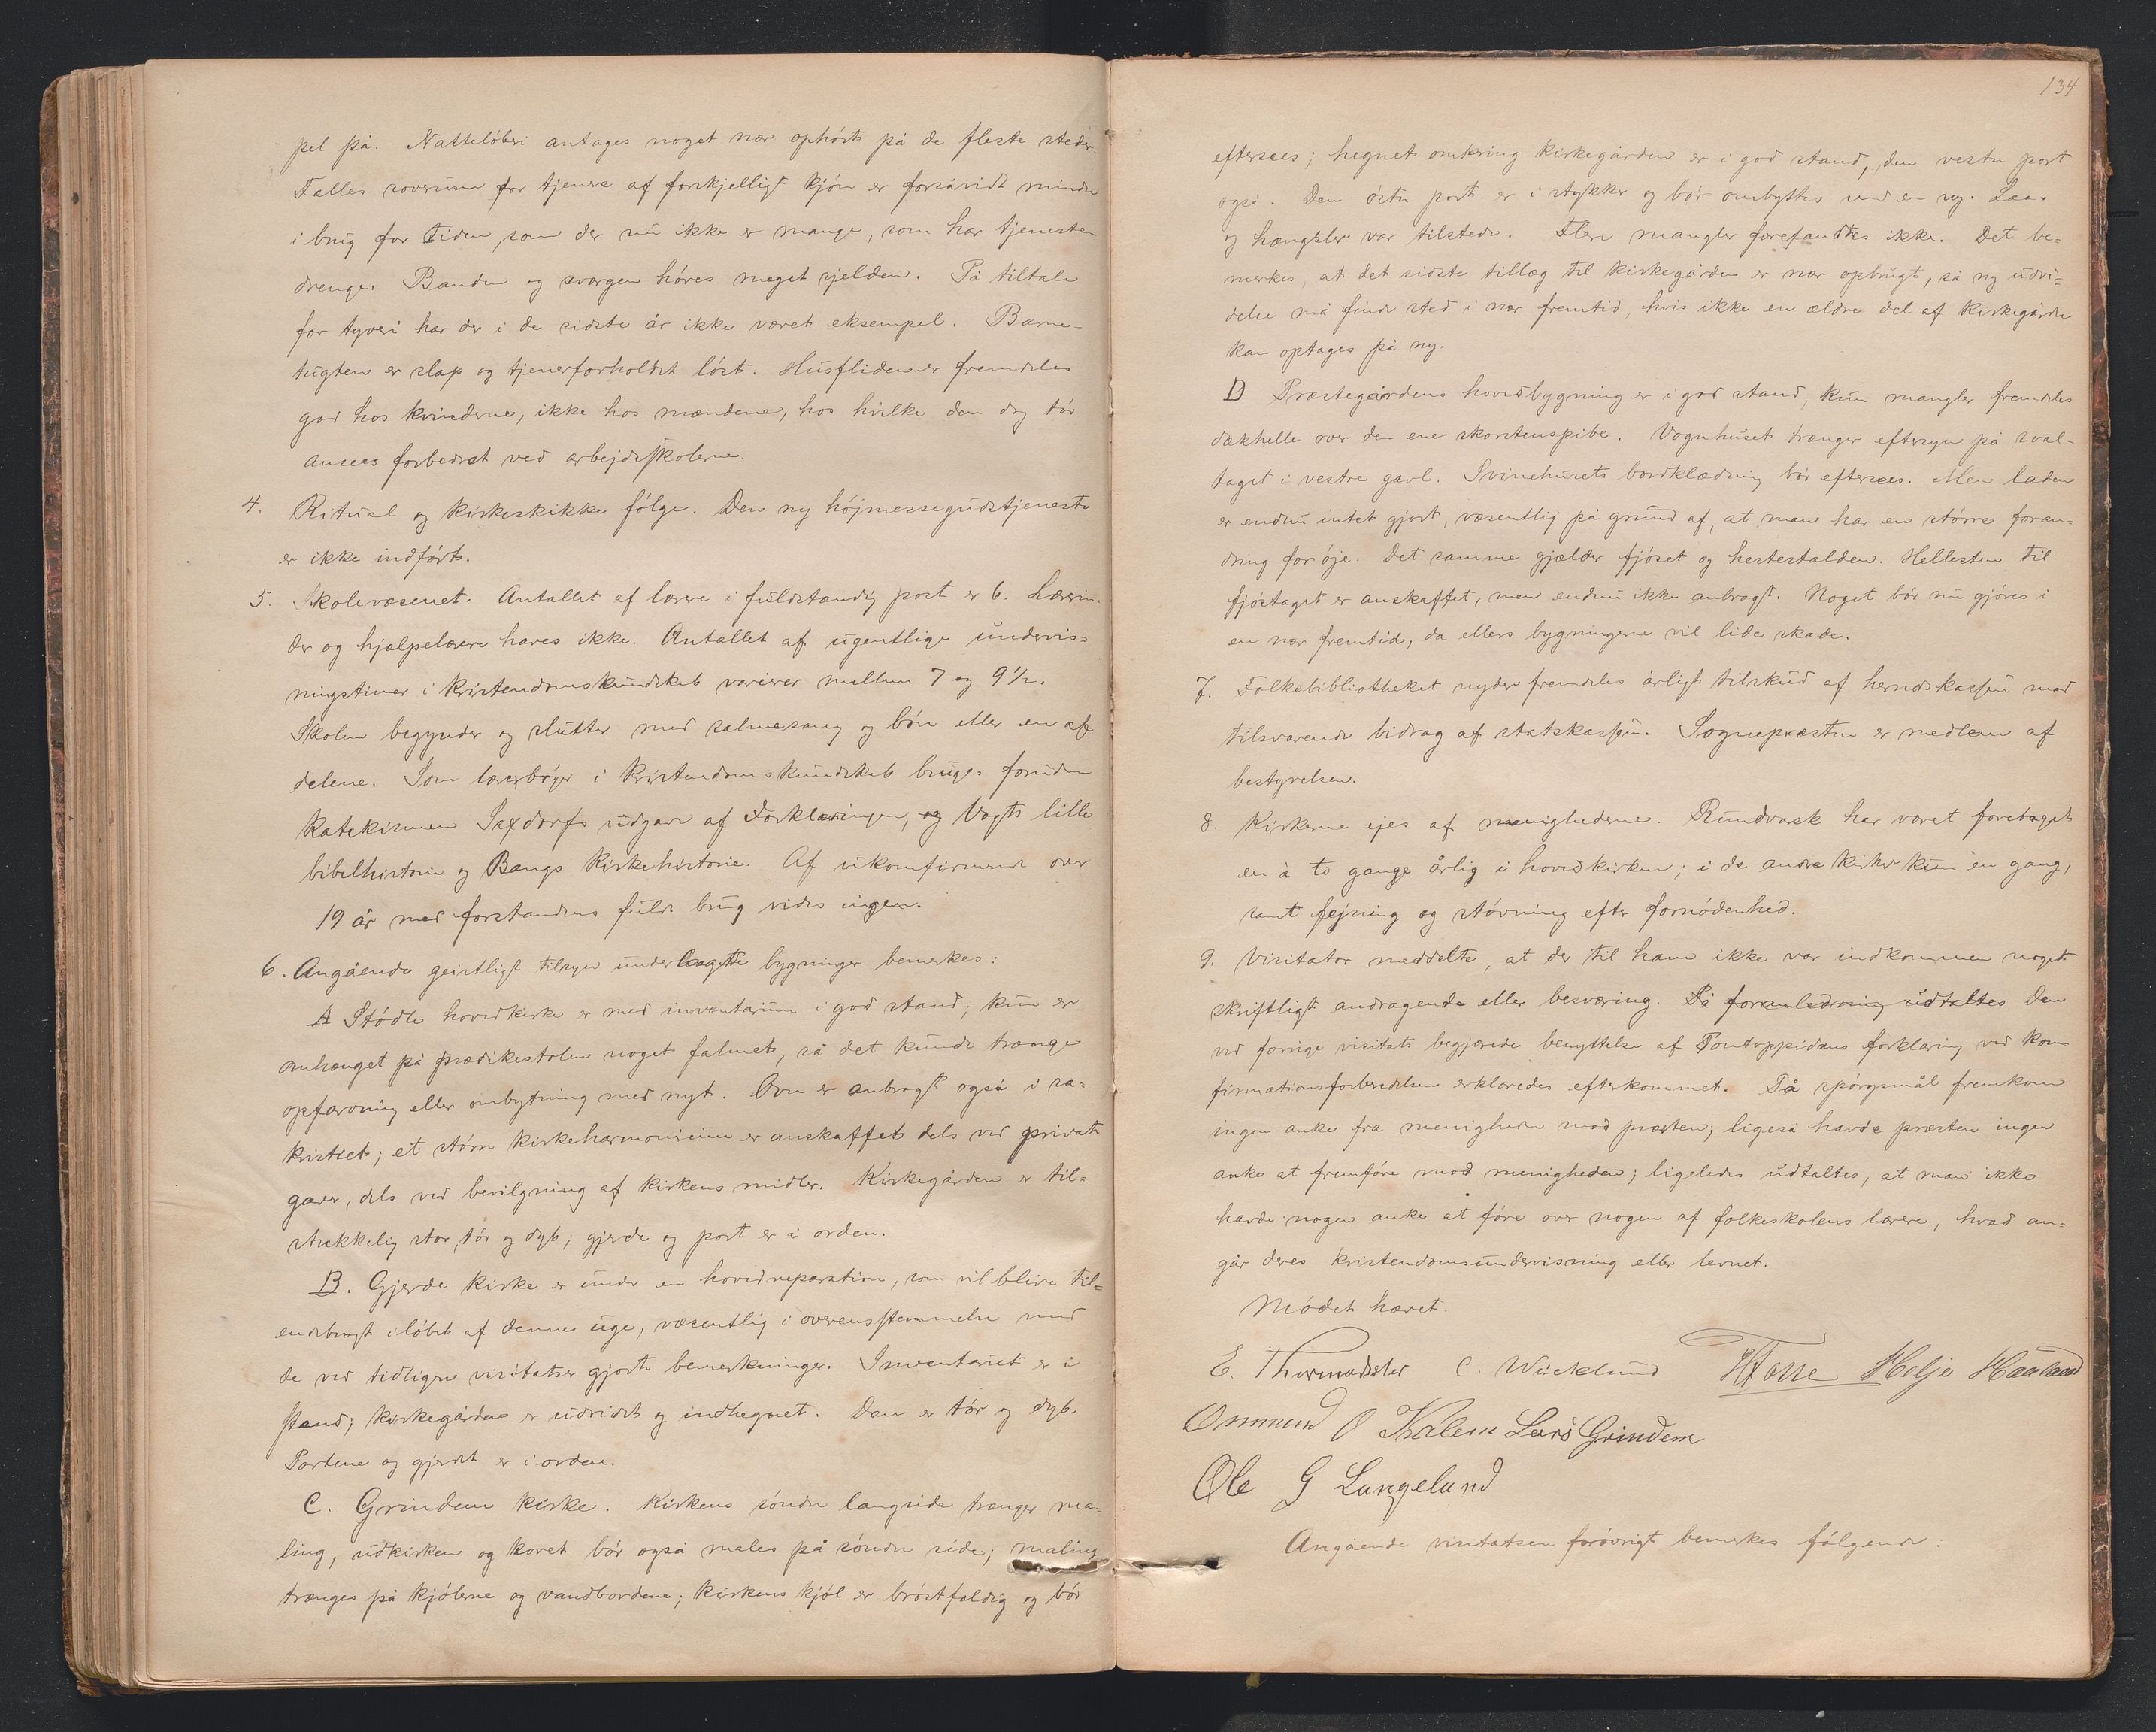 pel på. Natteløberi antages noget nær ophørt på de fleste steder.
Fælles soverum for tjenere af forskjelligt kjøn er forsåvidt mindre
i brug for tiden, som der nu ikke er mange, som har tjeneste-
drenge. Banden og sværgen høres meget sjelden. På tiltale
for tyveri har der i de sidste år ikke været eksempel. Barne-
tugten er slap og tjenerforholdet løst. Husfliden er fremdeles
god hos kvinderne, ikke hos mændene, hos hvilke den dog tør
ansees forbedret ved arbejdsskolerne.
4. Ritual og kirkeskikke følges. Den ny højmessegudstjeneste
er ikke indført.
5. Skolevæsenet. Antallet af lærere i fuldstændig post er 6. Lærerin-
der og hjælpelærere haves ikke. Antallet af ugentlige undervis=
ningstimer i kristendomskundskab varierer mellem 7 og 9½.
Skolen begynder og slutter med salmesang og bøn eller en af
delene. Som lærebøger i kristendomskundskab bruges foruden
katekismen Saxdorfs udgave af Forklaringen, og Vogts lille
bibelhistorie og Bangs kirkehistorie. Af ukonfirmerede over
19 år med forstandens fulde brug vides ingen.
6. Angående geistligt tilsyn underlagte bygninger bemerkes:
A Stødle hovedkirke er med inventarium i god stand; kun er
omhænget på prædikestolen noget falmet, så det kunde trænge
opfarvning eller ombytning med nyt. Ovn er anbragt også i sa-
kristiet; et større kirkeharmonium er anskaffet dels ved private
gaver, dels ved bevilgning af kirkens midler. Kirkegården er til=
strekkelig stor, tør og dyb; gjerde og port er i orden.
B. Gjerde kirke er under en hovedreparation, som vil blive til=
endebragt i løbet af denne uge, væsentlig i overensstemmelse med
de ved tidligere visitatser gjorte bemerkninger. Inventariet er i
stand; kirkegården er udvidet og indhegnet. Den er tør og dyb.
Portene og gjerdet er i orden.
C. Grindem kirke. Kirkens søndre langside trænger ma=
ling, udkirken og koret bør også males på søndre side; maling
trænges på kjølerne og vandbordene; kirkens kjøl er brøstfældig og bør
134
eftersees; hegnet omkring kirkegården er i god stand, den vestre port
også. Den østre port er i stykker og bør ombyttes med en ny. Laas
og hængsler var tilstede. Flere mangler forefandtes ikke. Det be=
merkes, at det sidste tillæg til kirkegården er nær opbrugt, så ny udvi=
delse må finde sted i nær fremtid, hvis ikke en ældre del af kirkegården
kan optages på ny.
D Præstegårdens hovedbygning er i god stand, kun mangler fremdeles
dækhelle over den ene skorstenspibe. Vognhuset trænger eftersyn på sval-
taget i vestre gavl. Svinehusets bordklædning bør eftersees. Med laden
er endnu intet gjort, væsentlig på grund af, at man har en større foran=
dring for øje. Det samme gjælder fjøset og hestestalden. Hellesten til
fjøstaget er anskaffet, men endnu ikke anbragt. Noget bør nu gjøres i
en nær fremtid, da ellers bygningerne vil lide skade.
7. Folkebibliotheket nyder fremdeles årligt tilskud af herredskassen mod
tilsvarende bidrag af statskassen. Sognepræsten er medlem af
bestyrelsen.
8. Kirkerne ejes af menighederne. Rundvask har været foretaget
en à to gange årlig i hovedkirken; i de andre kirker kun én gang,
samt fejning og støvning efter fornødenhed.
9. Visitator meddelte, at der til ham ikke var indkommen noget
skriftligt andragende eller besværing. På foranledning udtaltes Den
ved forrige visitats begjærede benyttelse af Pontoppidans forklaring ved kon=
firmationsforberedelsen erklæredes efterkommet. På spørgsmål fremkom
ingen anke fra menigheden mod præsten; ligeså havde præsten ingen
anke at fremføre mod menigheden; ligeledes udtaltes, at man ikke
havde nogen anke at føre over nogen af folkeskolens lærere, hvad an=
går deres kristendomsundervisning eller levnet.
Mødet hævet.
E. Thormodsæter C. Wicklund HFosse Helje Haaland
Osmund O Kalem Lars Grindem
Ole G Langeland
Angående visitatsen forøvrigt bemerkes følgende: